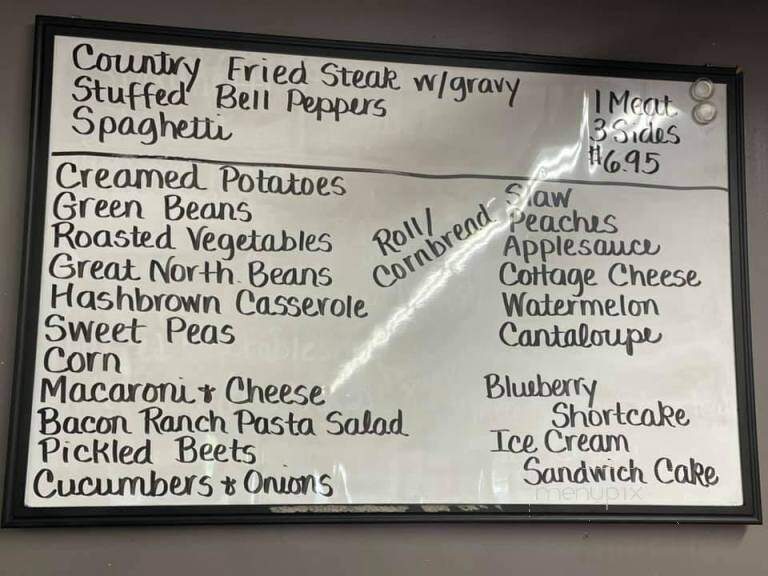 Country Fried Steak w/gravy
Stuffed Bell Peppers
Spaghetti
1 Meat
3 Sides
$6.95
Creamed Potatoes
Green Beans
Roasted Vegetables
Great North. Beans
Hashbrown Casserole
Sweet Peas
Corn
Macaroni & Cheese
Bacon Ranch Pasta Salad
Pickled Beets
Cucumbers & Onions
Roll/
Cornbread
Slaw
Peaches
Applesauce
Cottage Cheese
Watermelon
Cantaloupe
Blueberry
Shortcake
Ice Cream
Sandwich Cake
menupix